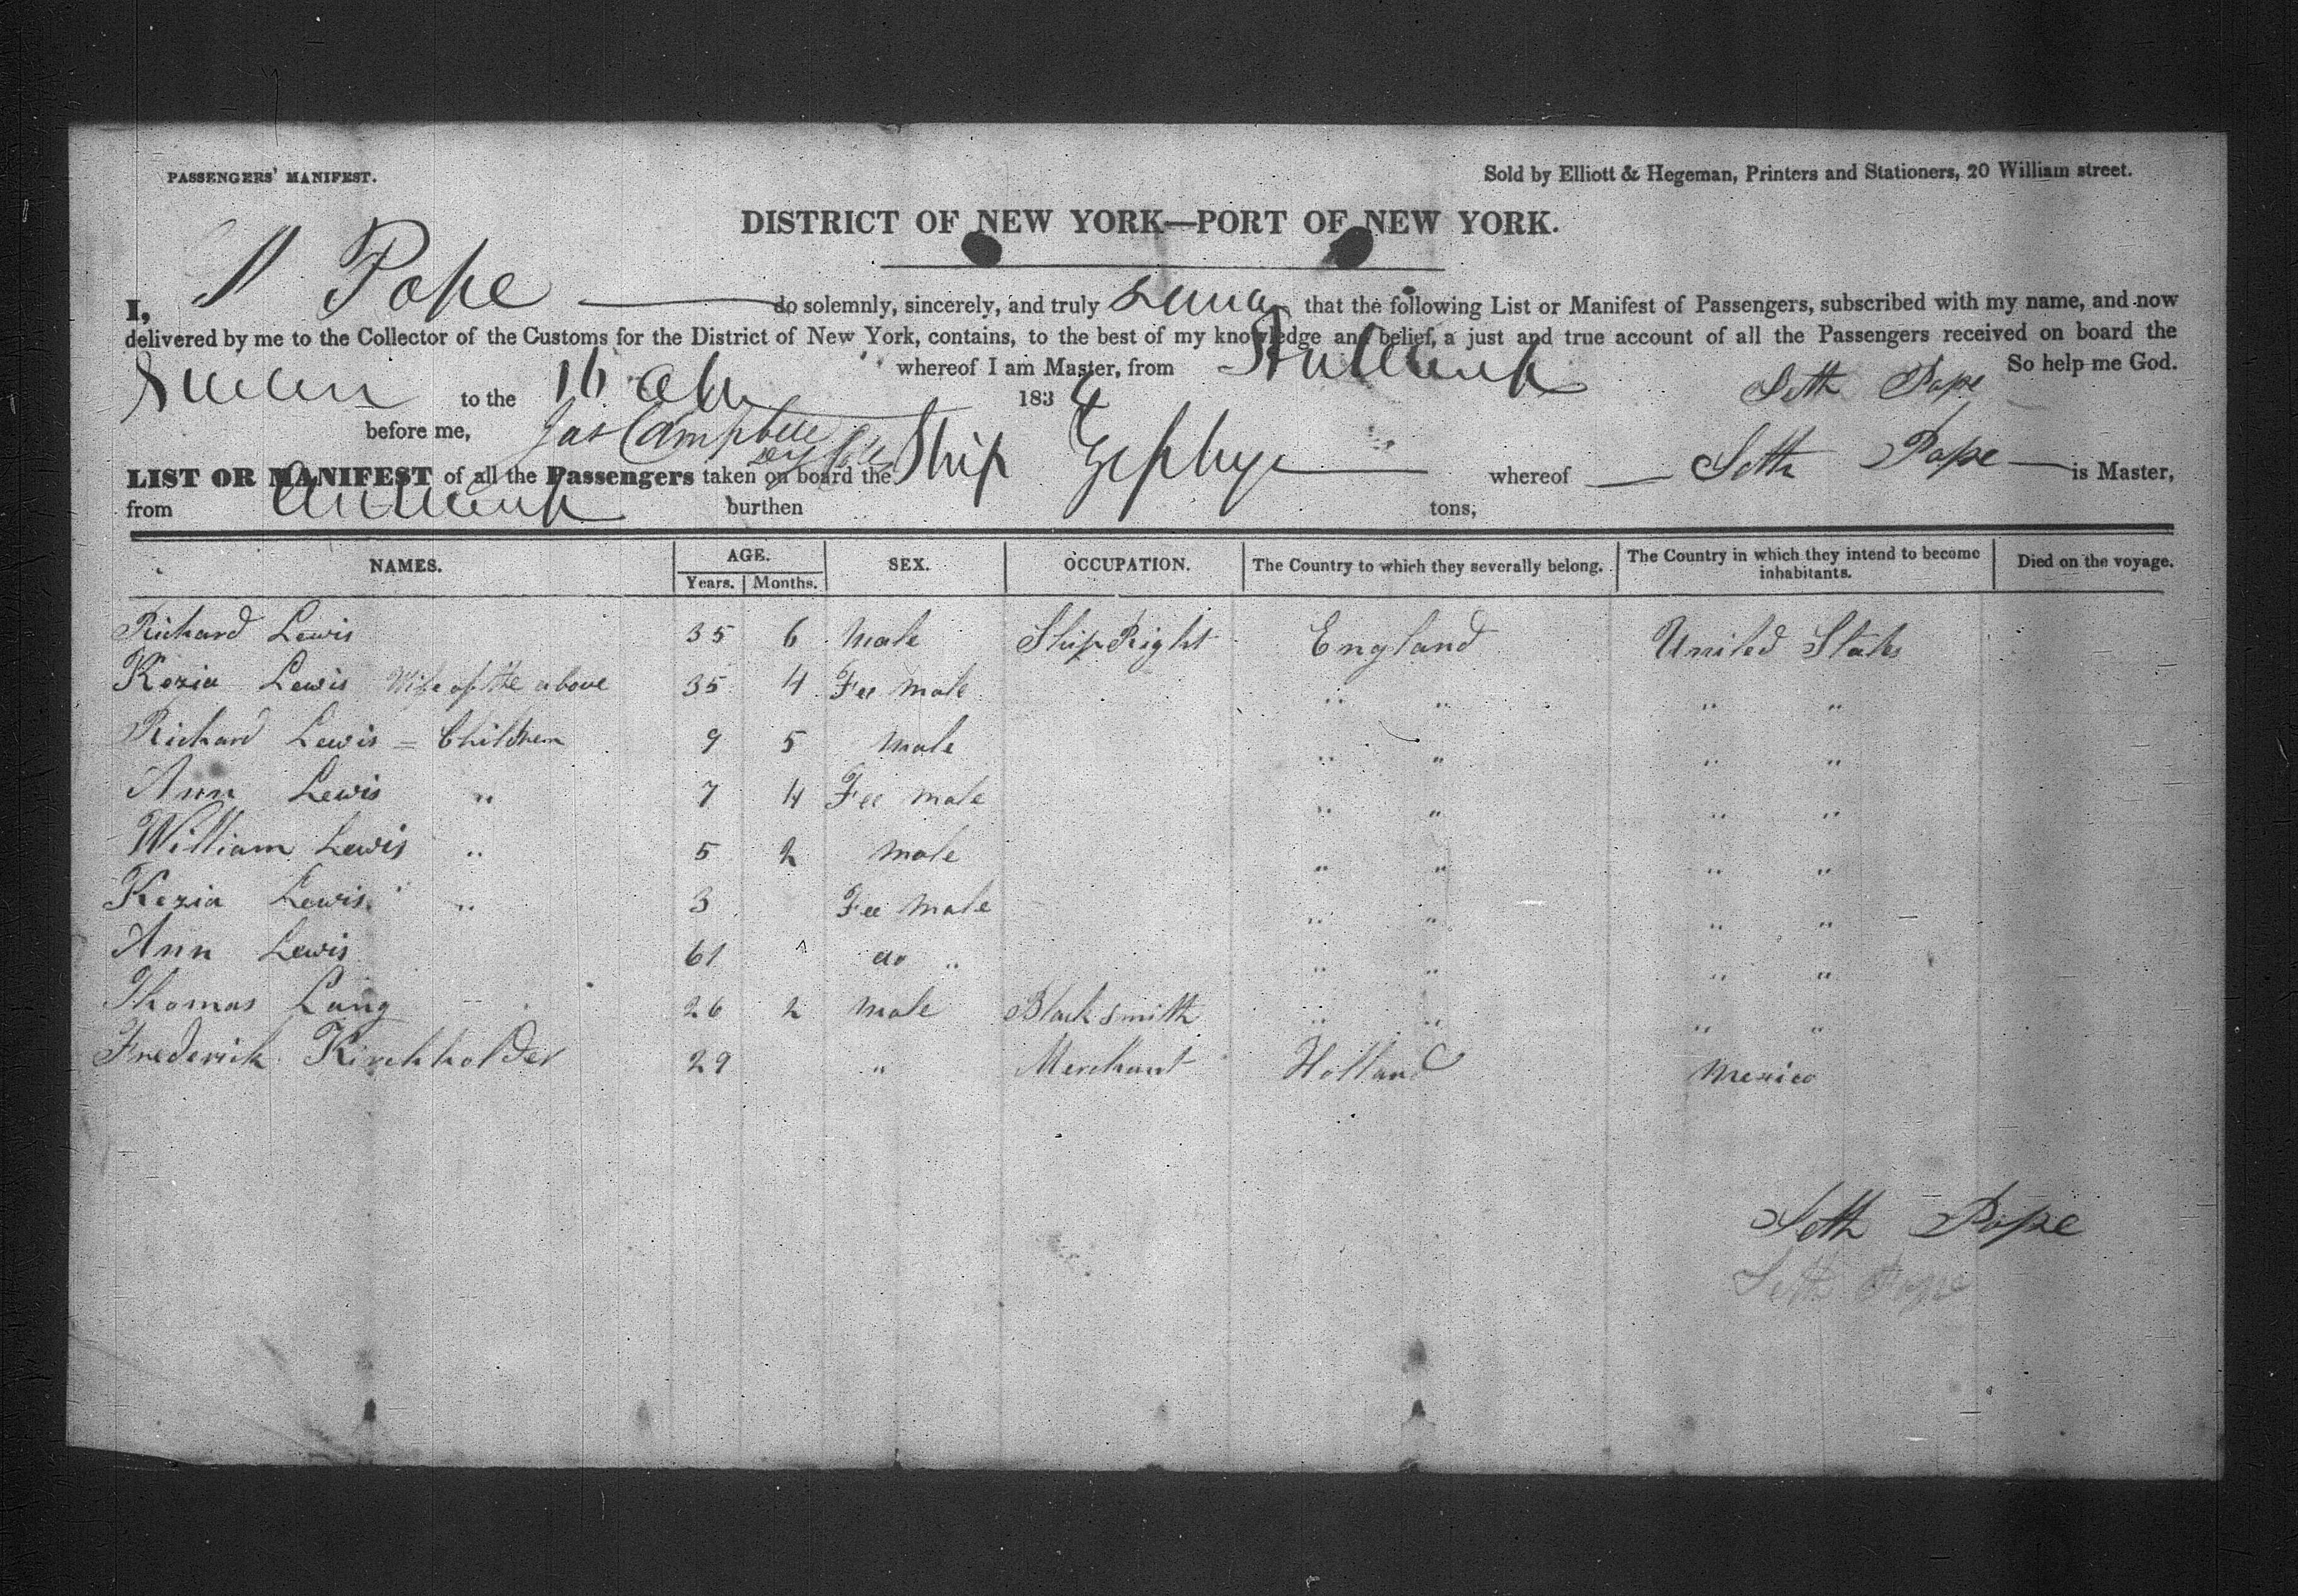 PASSENGERS' MANIFEST.
Sold by Elliott & Hegeman, Printers and Stationers, 20 William street.
DISTRICT OF NEW YORK—PORT OF NEW YORK.
I, S Pope do solemnly, sincerely, and truly swear that the following List or Manifest of Passengers, subscribed with my name, and now
delivered by me to the Collector of the Customs for the District of New York, contains, to the best of my knowledge and belief, a just and true account of all the Passengers received on board the
whereof I am Master, from So help me God.
Sworn to the 16 183 Seth Pope
before me, Jas Campbell
LIST OR MANIFEST of all the Passengers taken on board the Ship Zephyr whereof Seth Pope is Master,
from burthen tons,
NAMES. AGE. SEX. OCCUPATION. The Country to which they severally belong. The Country in which they intend to become inhabitants. Died on the voyage.
Years. Months.
Richard Lewis 35 6 Male Ship Right England United States
Kezia Lewis Wife of the above 35 4 Fee male " " " "
Richard Lewis = Children 9 5 male " " " "
Ann Lewis " 7 4 Fee male " " " "
William Lewis " 5 2 male " " " "
Kezia Lewis " 3 Fee male " " " "
Ann Lewis 61 do " " " " "
Thomas Lang 26 2 male Blacksmith " " " "
Frederick Kirchholder 29 " Merchant Holland Mexico
Seth Pope
Seth Pope